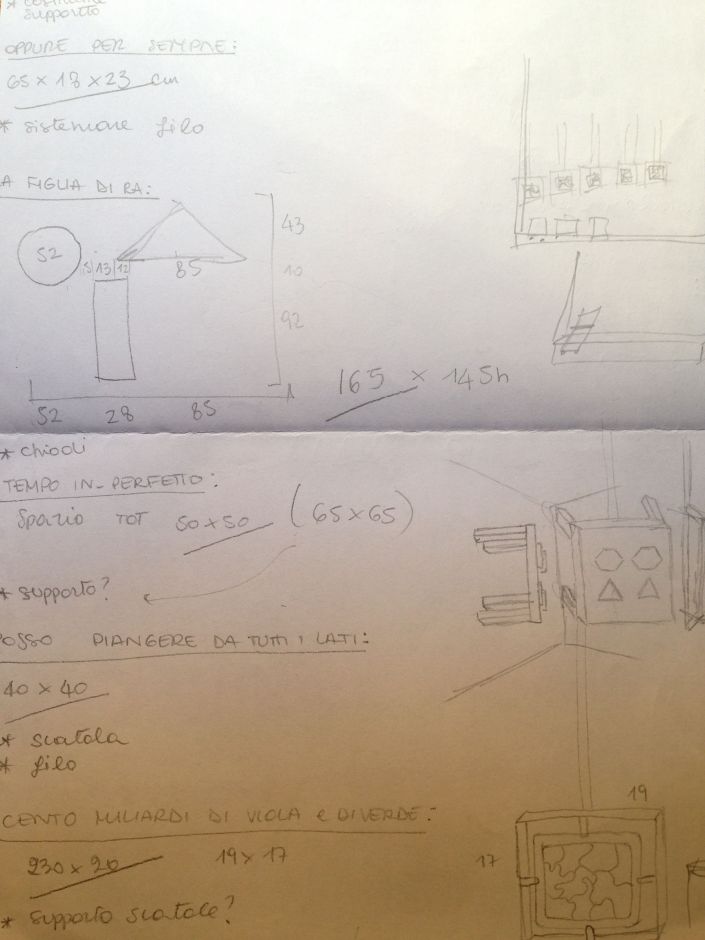 supporto
OPPURE PER SEMPRE:
65 × 13 × 23 cm
* sistemare filo
A FIGLIA DI RA:
52
5 13 12
85
43
10
92
52 28 85
165 × 145h
* chiodi
TEMPO IN-PERFETTO:
Spazio TOT 50×50 (65×65)
* supporto?
POSSO PIANGERE DA TUTTI I LATI:
40 × 40
* scatola
* filo
CENTO MILIARDI DI VIOLA e DI VERDE:
230 × 20 19 × 17
19
17
* supporto scatole?